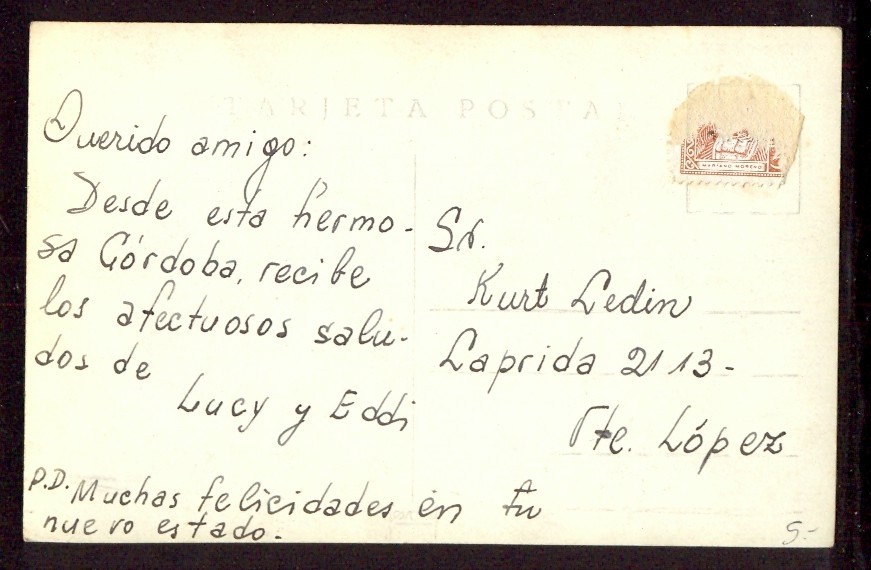 TARJETA POSTAL
MARIANO MORENO
Querido amigo:
Desde esta hermo-
sa Córdoba, recibe
los afectuosos salu-
dos de
Lucy y Eddi
P.D. Muchas felicidades en tu
nuevo estado.
Sr.
Kurt Ledin
Laprida 2113-
Vte. López
5.-